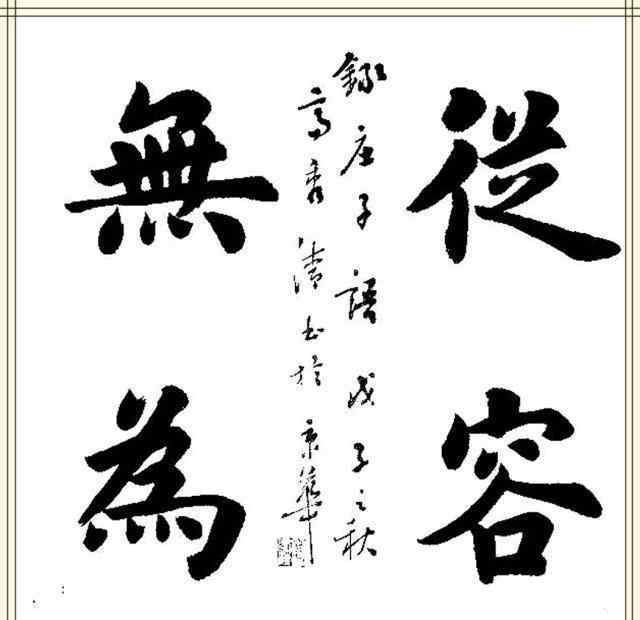 從容
錄庄子語戊子之秋
高秀清書於京華
無為